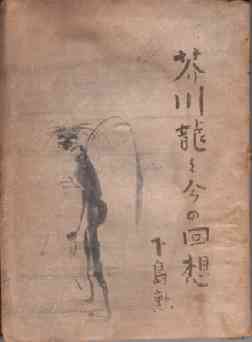 芥川龍之介の回想
下島勲